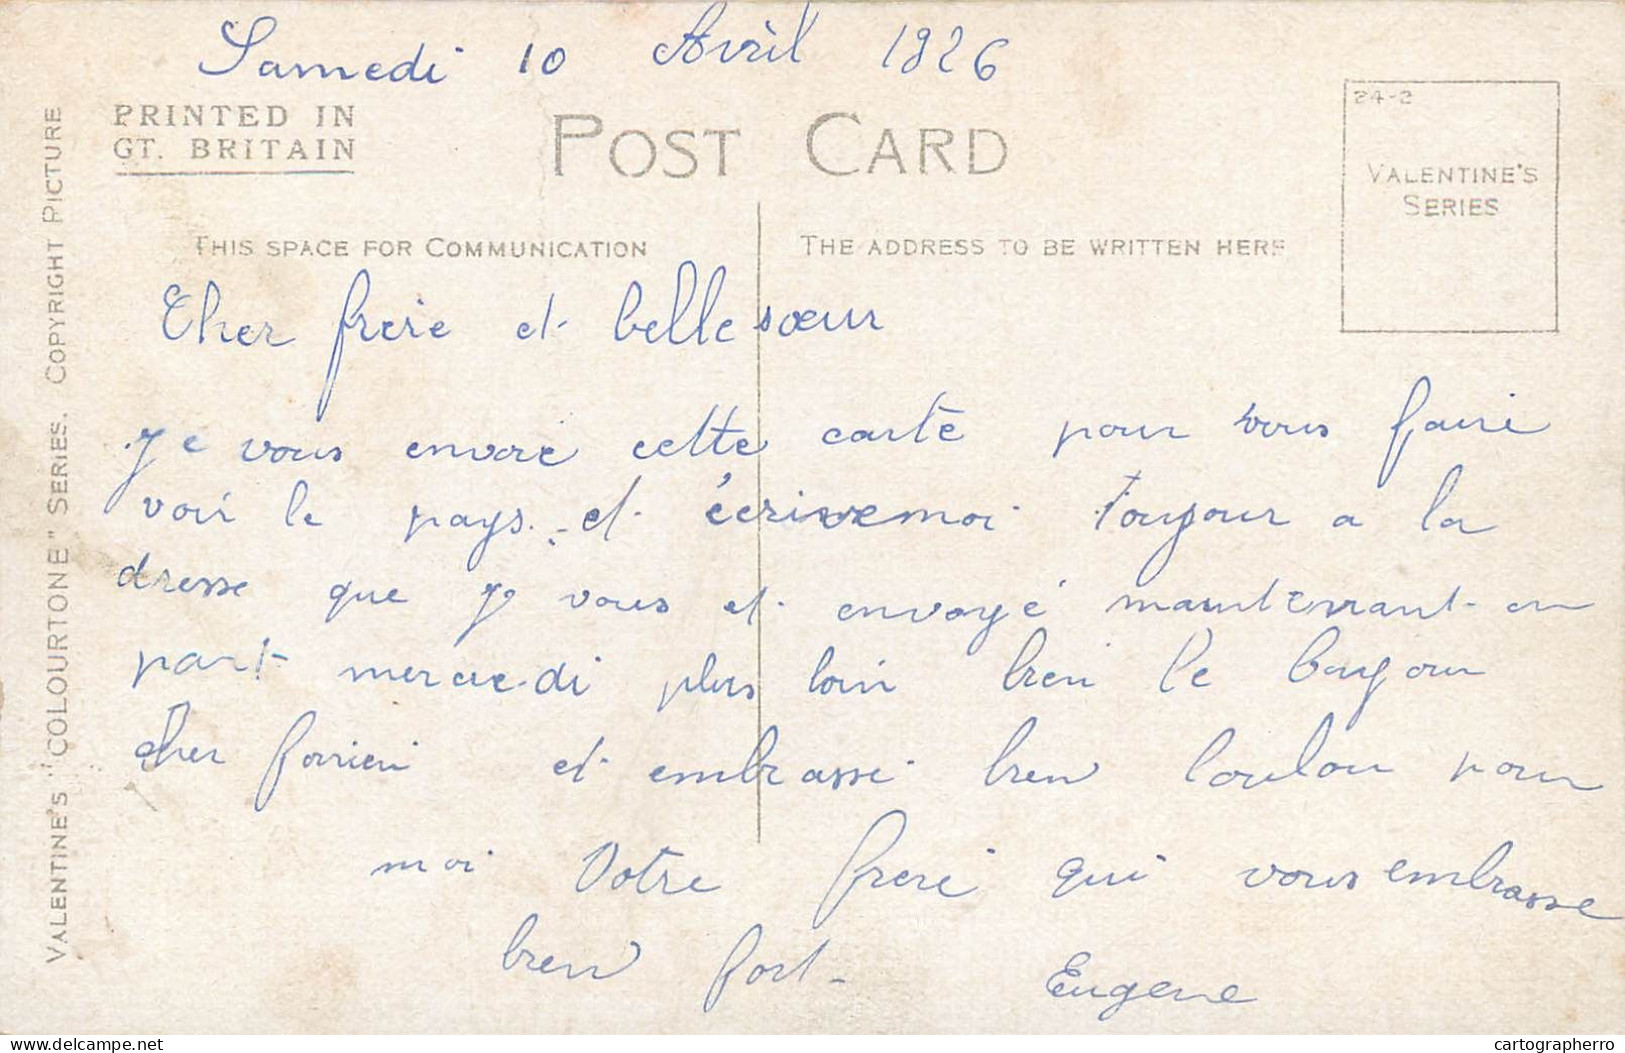 Samedi 10 Avril 1926
PRINTED IN
GT. BRITAIN
POST CARD
24-2
VALENTINE'S
SERIES
THIS SPACE FOR COMMUNICATION
THE ADDRESS TO BE WRITTEN HERE
VALENTINE'S "COLOURTONE" SERIES. COPYRIGHT PICTURE
Cher frere et belle sœur
Je vous envoie cette carte pour vous faire
voir le pays. et écrivemoi toujour a la
dresse que je vous et envoyé maintenant on
part mercredi plus loin bien le bonjour
cher et embrasse bien loulou pour
moi Votre frere qui vous embrasse
bien fort-
Eugene
delcampe.net
cartographerro